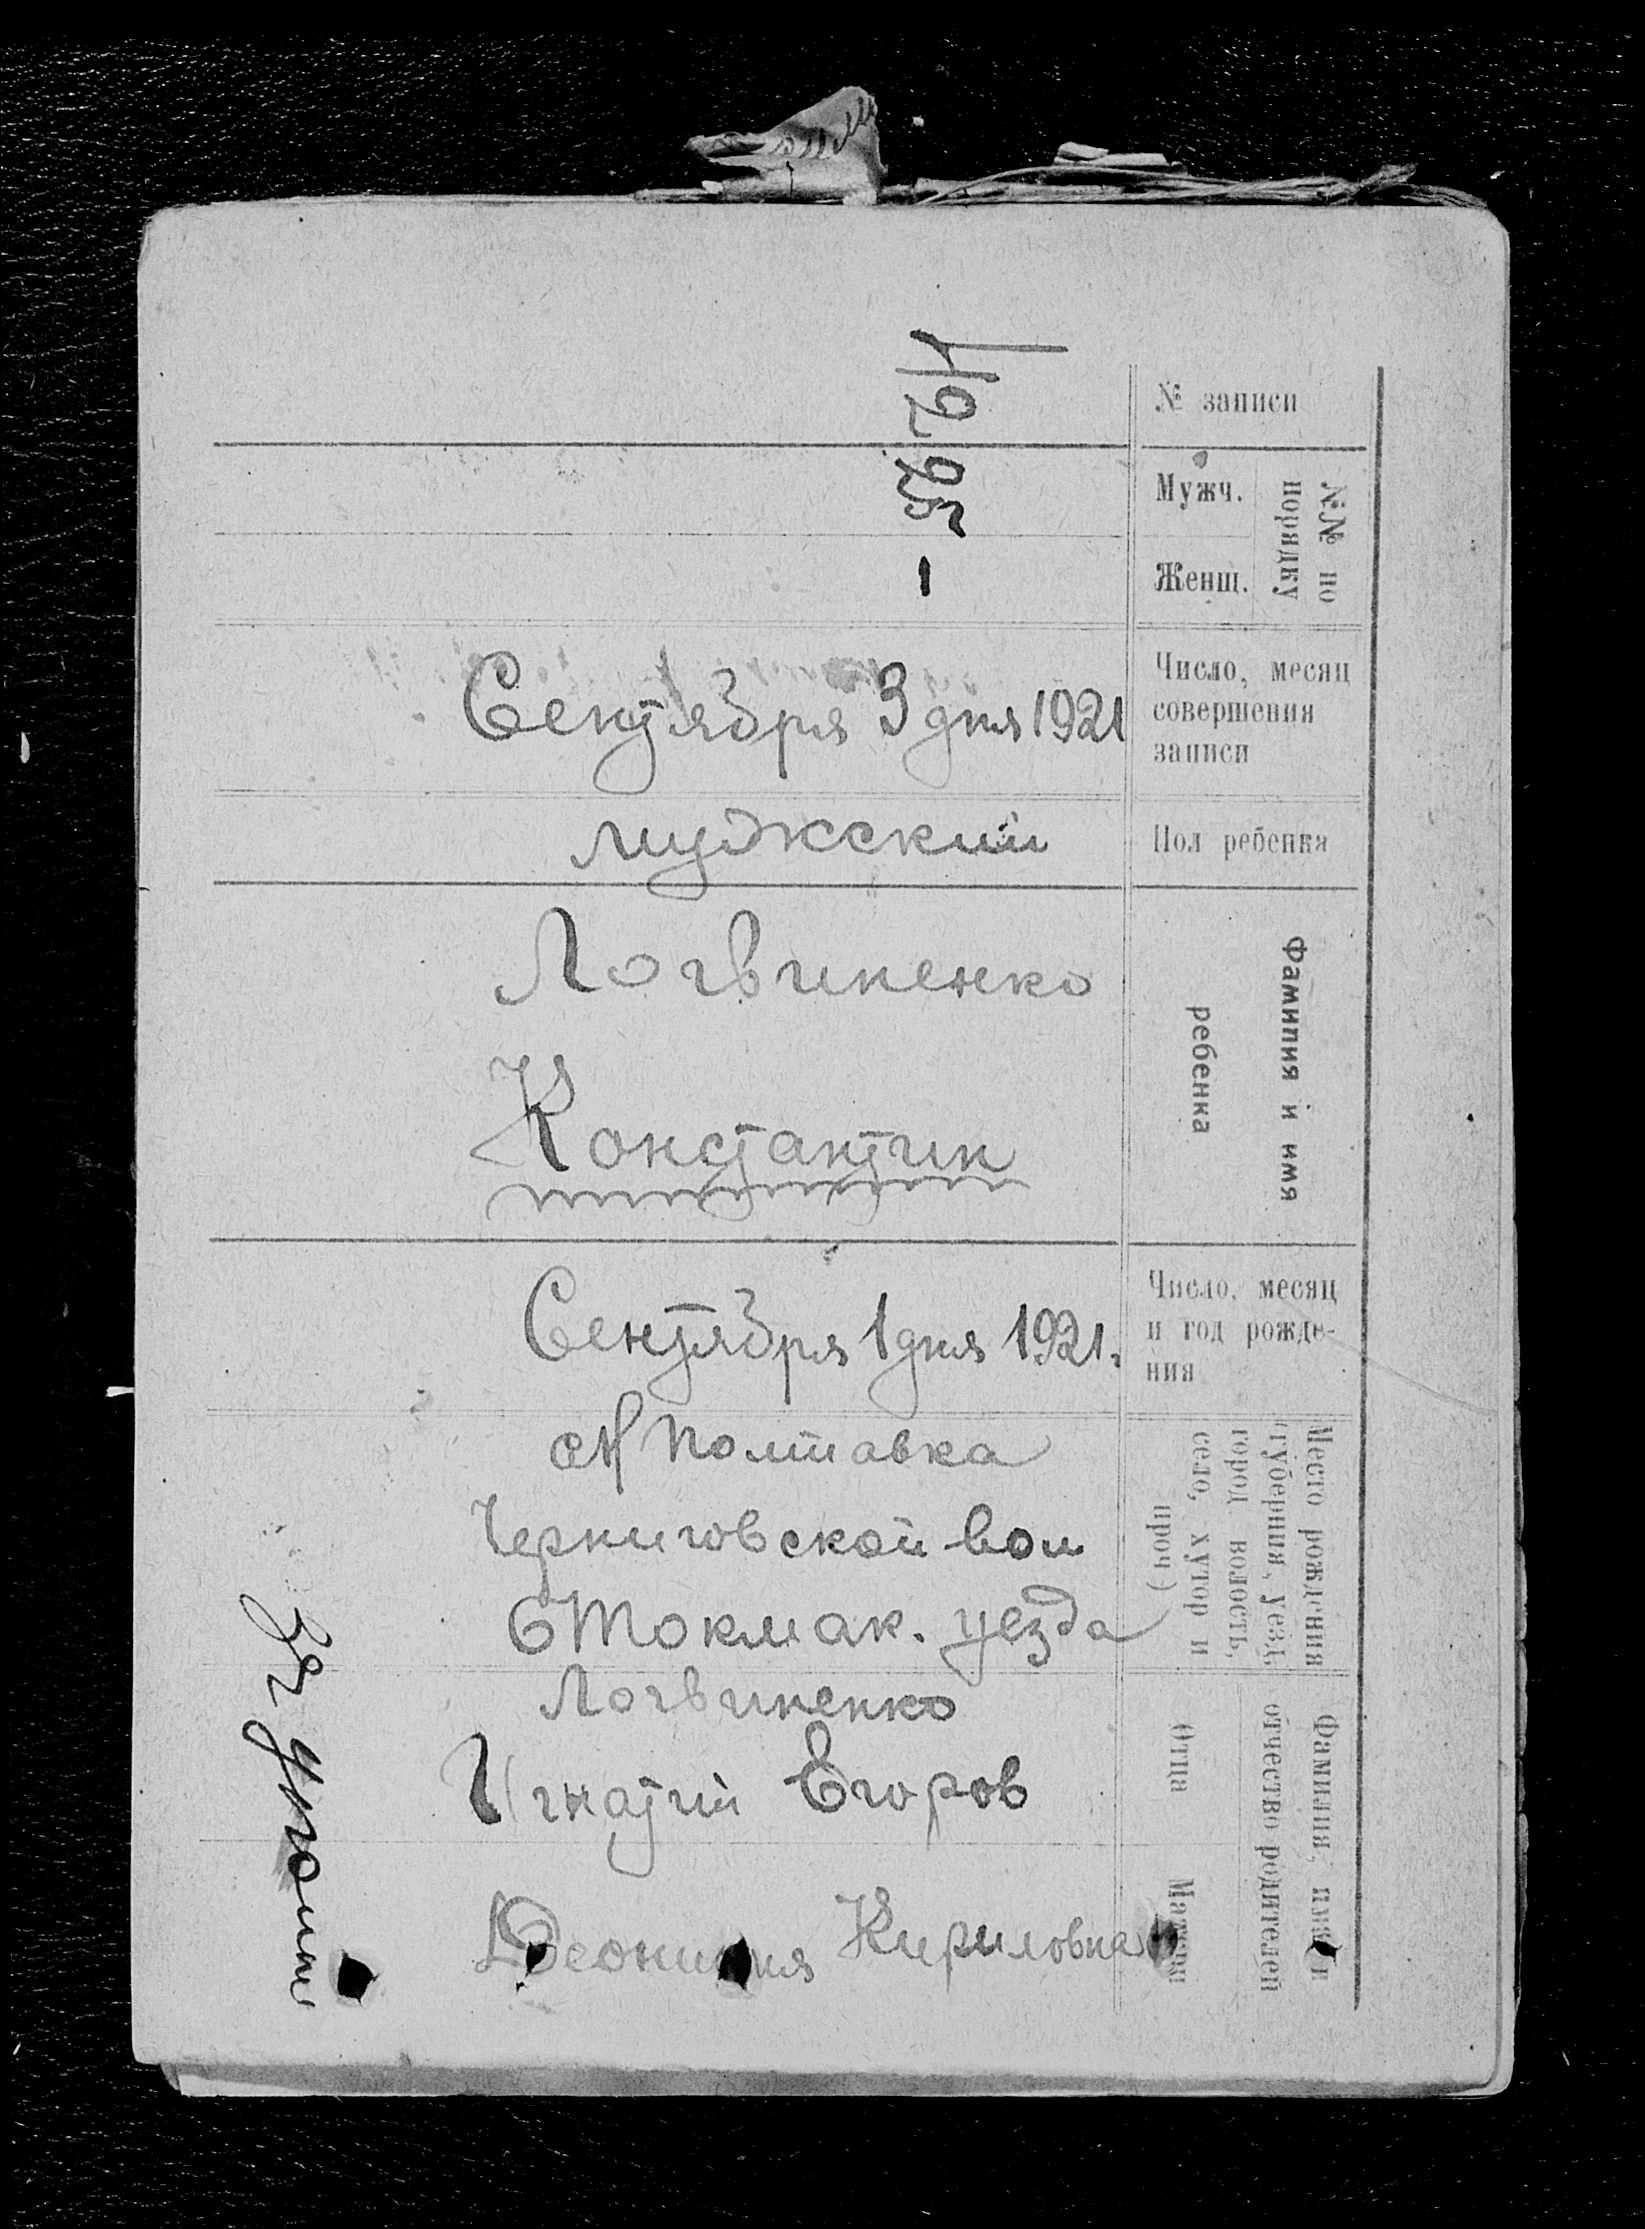 № записи
142
№№ по
порядку
Мужч.
95
Женщ.
—
Число, месяц
совершения
записи
Сентября 3 дня 1921
Пол ребенка
мужский
Фамилия и имя
ребенка
Логвиненко
Константин
Число, месяц
и год рожде-
ния
Сентября 1 дня 1921.
Место рождения
(губерния, уезд,
город волость,
село, хутор и
проч)
Полтавка
Черниговской вол
Токмак. уезда
Фамилия, имя и
отчество родителей
Отца
Логвиненко
Игнатий Егоров
Матери
Кириловна